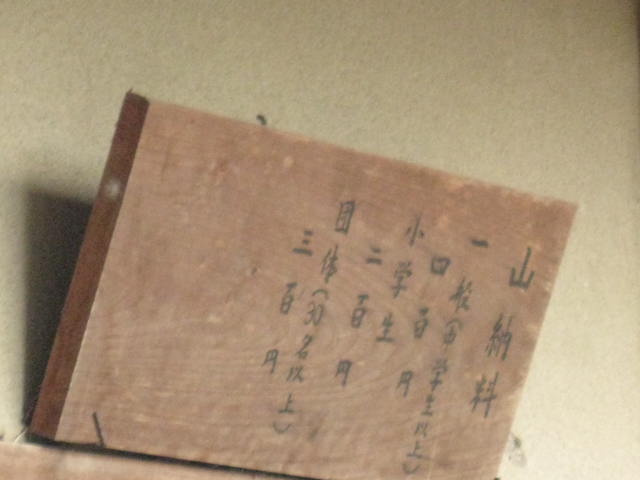 山納料
一般(中学生以上)
四百円
小学生
二百円
団体(30名以上)
三百円